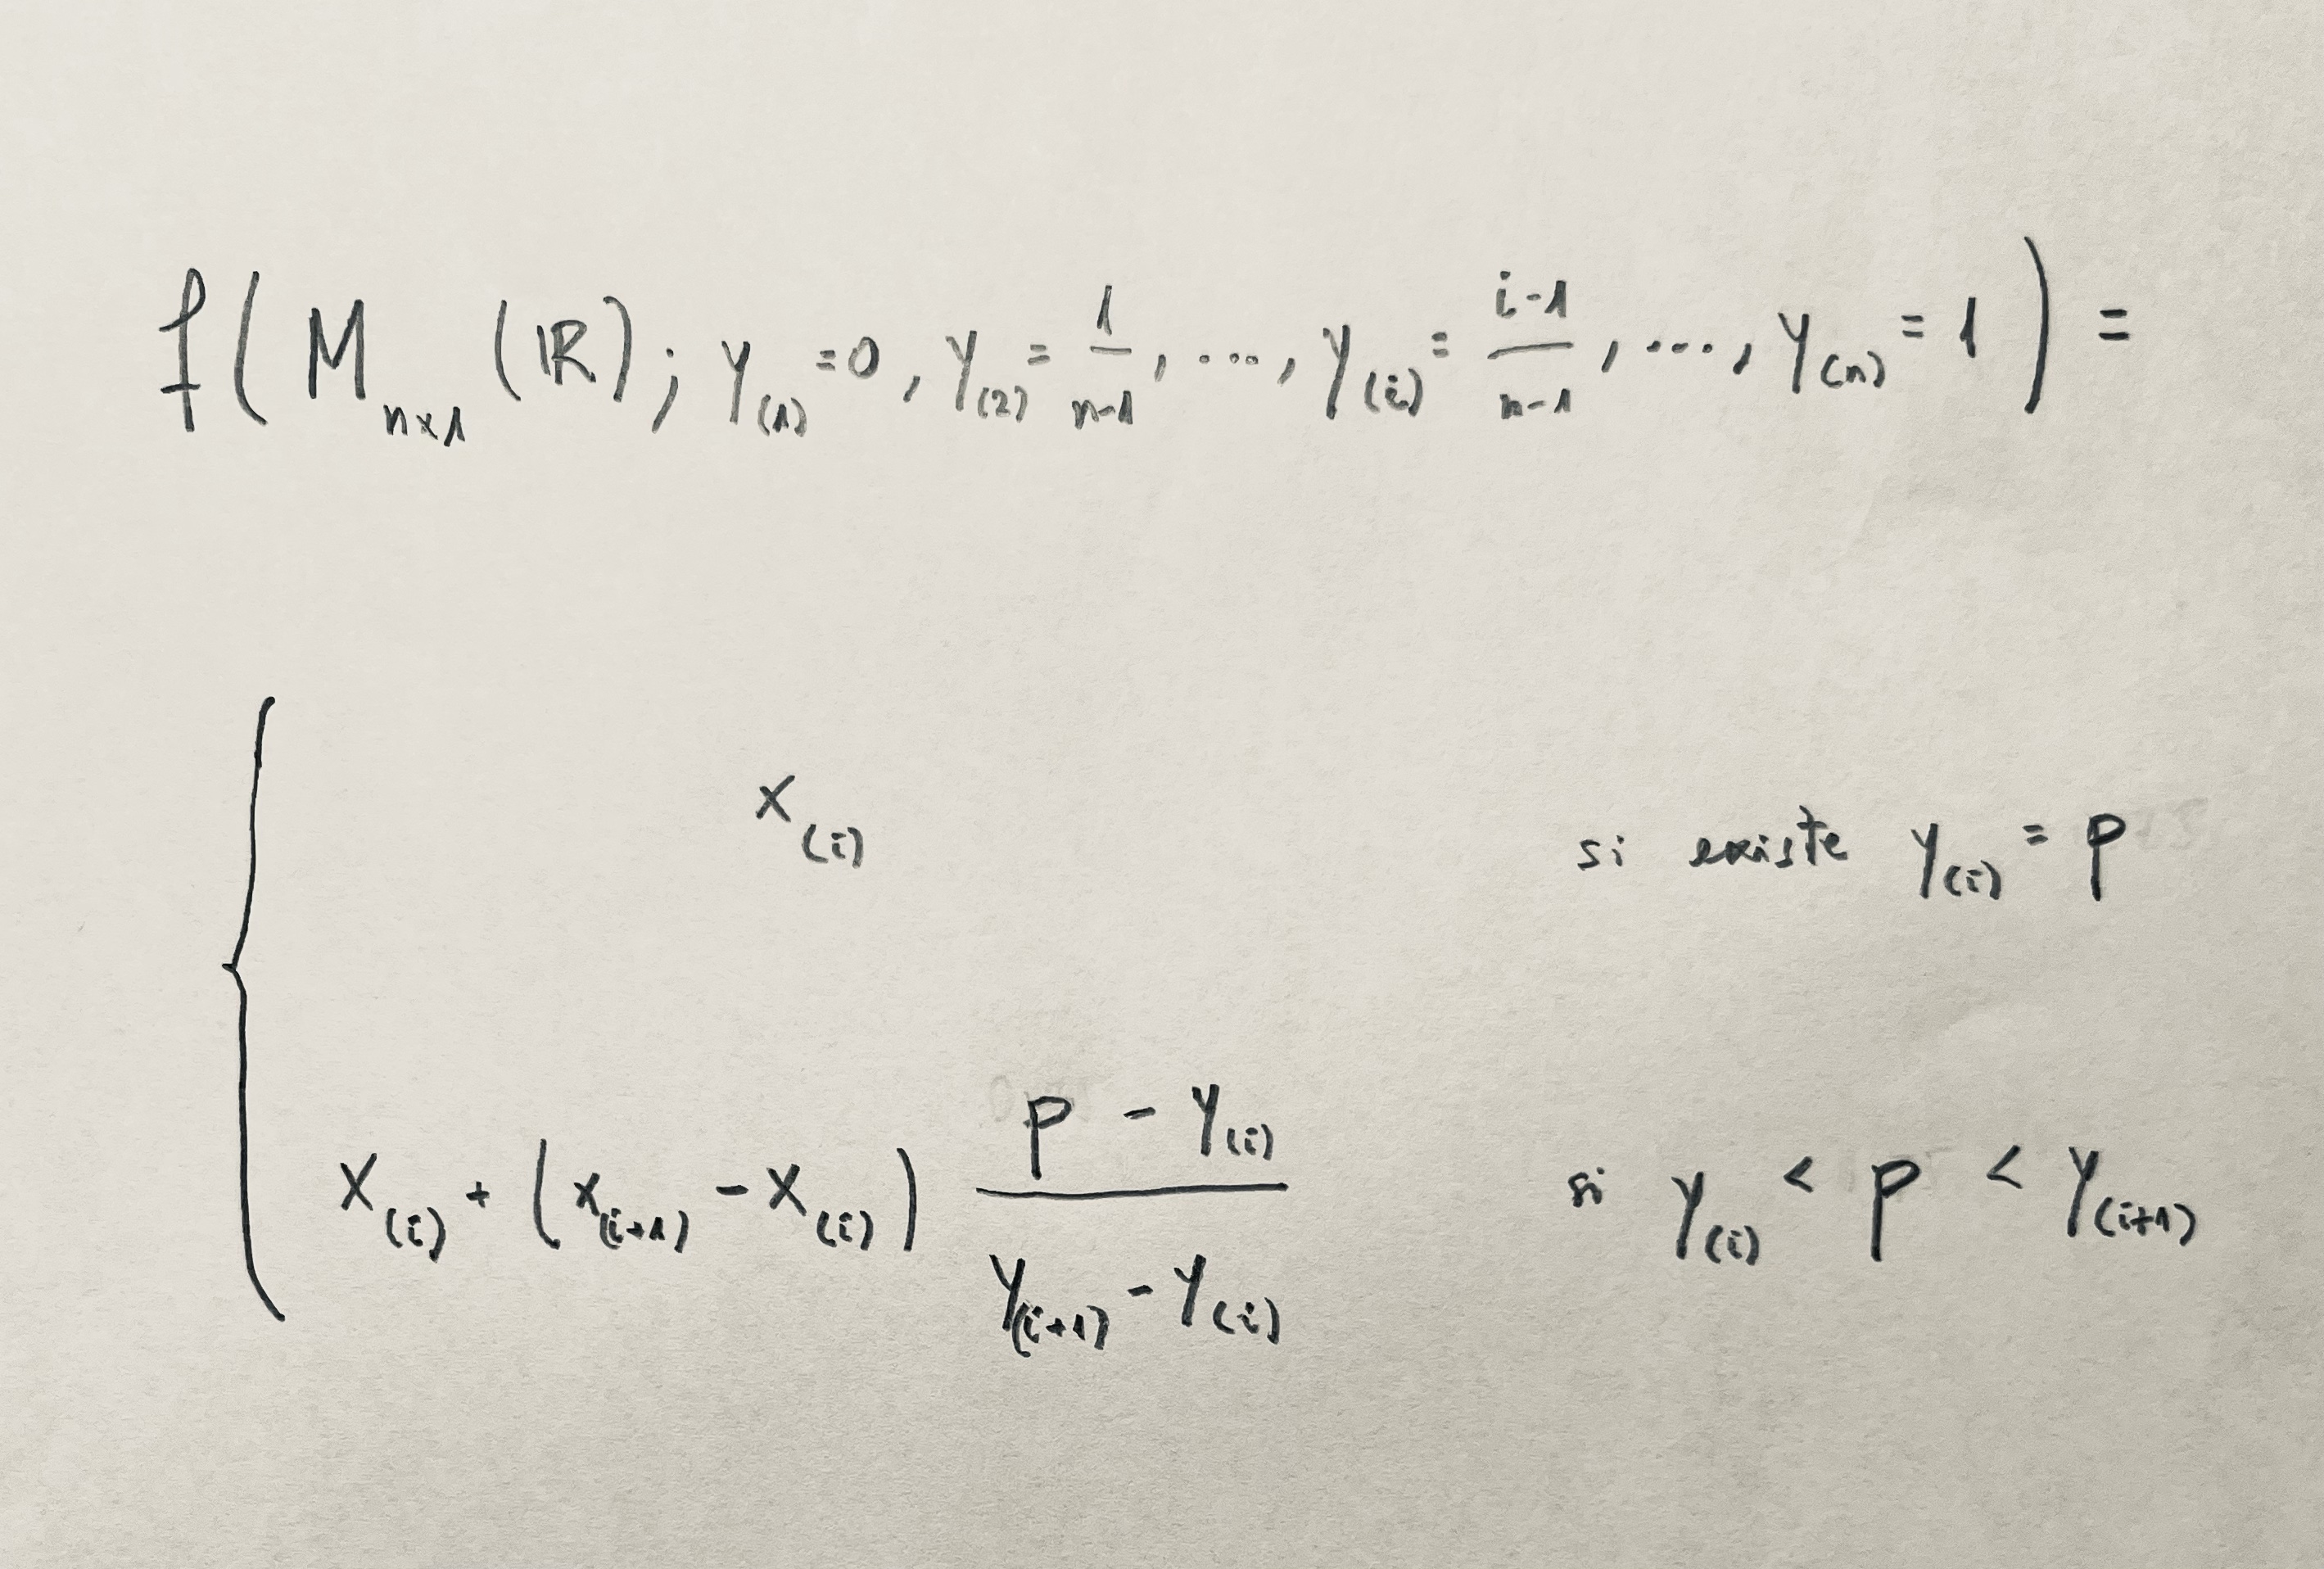 f( M_{n×1} (ℝ); y_{(1)} = 0, y_{(2)} = \frac{1}{n-1}, ..., y_{(i)} = \frac{i-1}{n-1}, ..., y_{(n)} = 1 ) =
x_{(i)} si existe y_{(i)} = p
x_{(i)} + (x_{(i+1)} - x_{(i)}) \frac{p - y_{(i)}}{y_{(i+1)} - y_{(i)}} si y_{(i)} < p < y_{(i+1)}